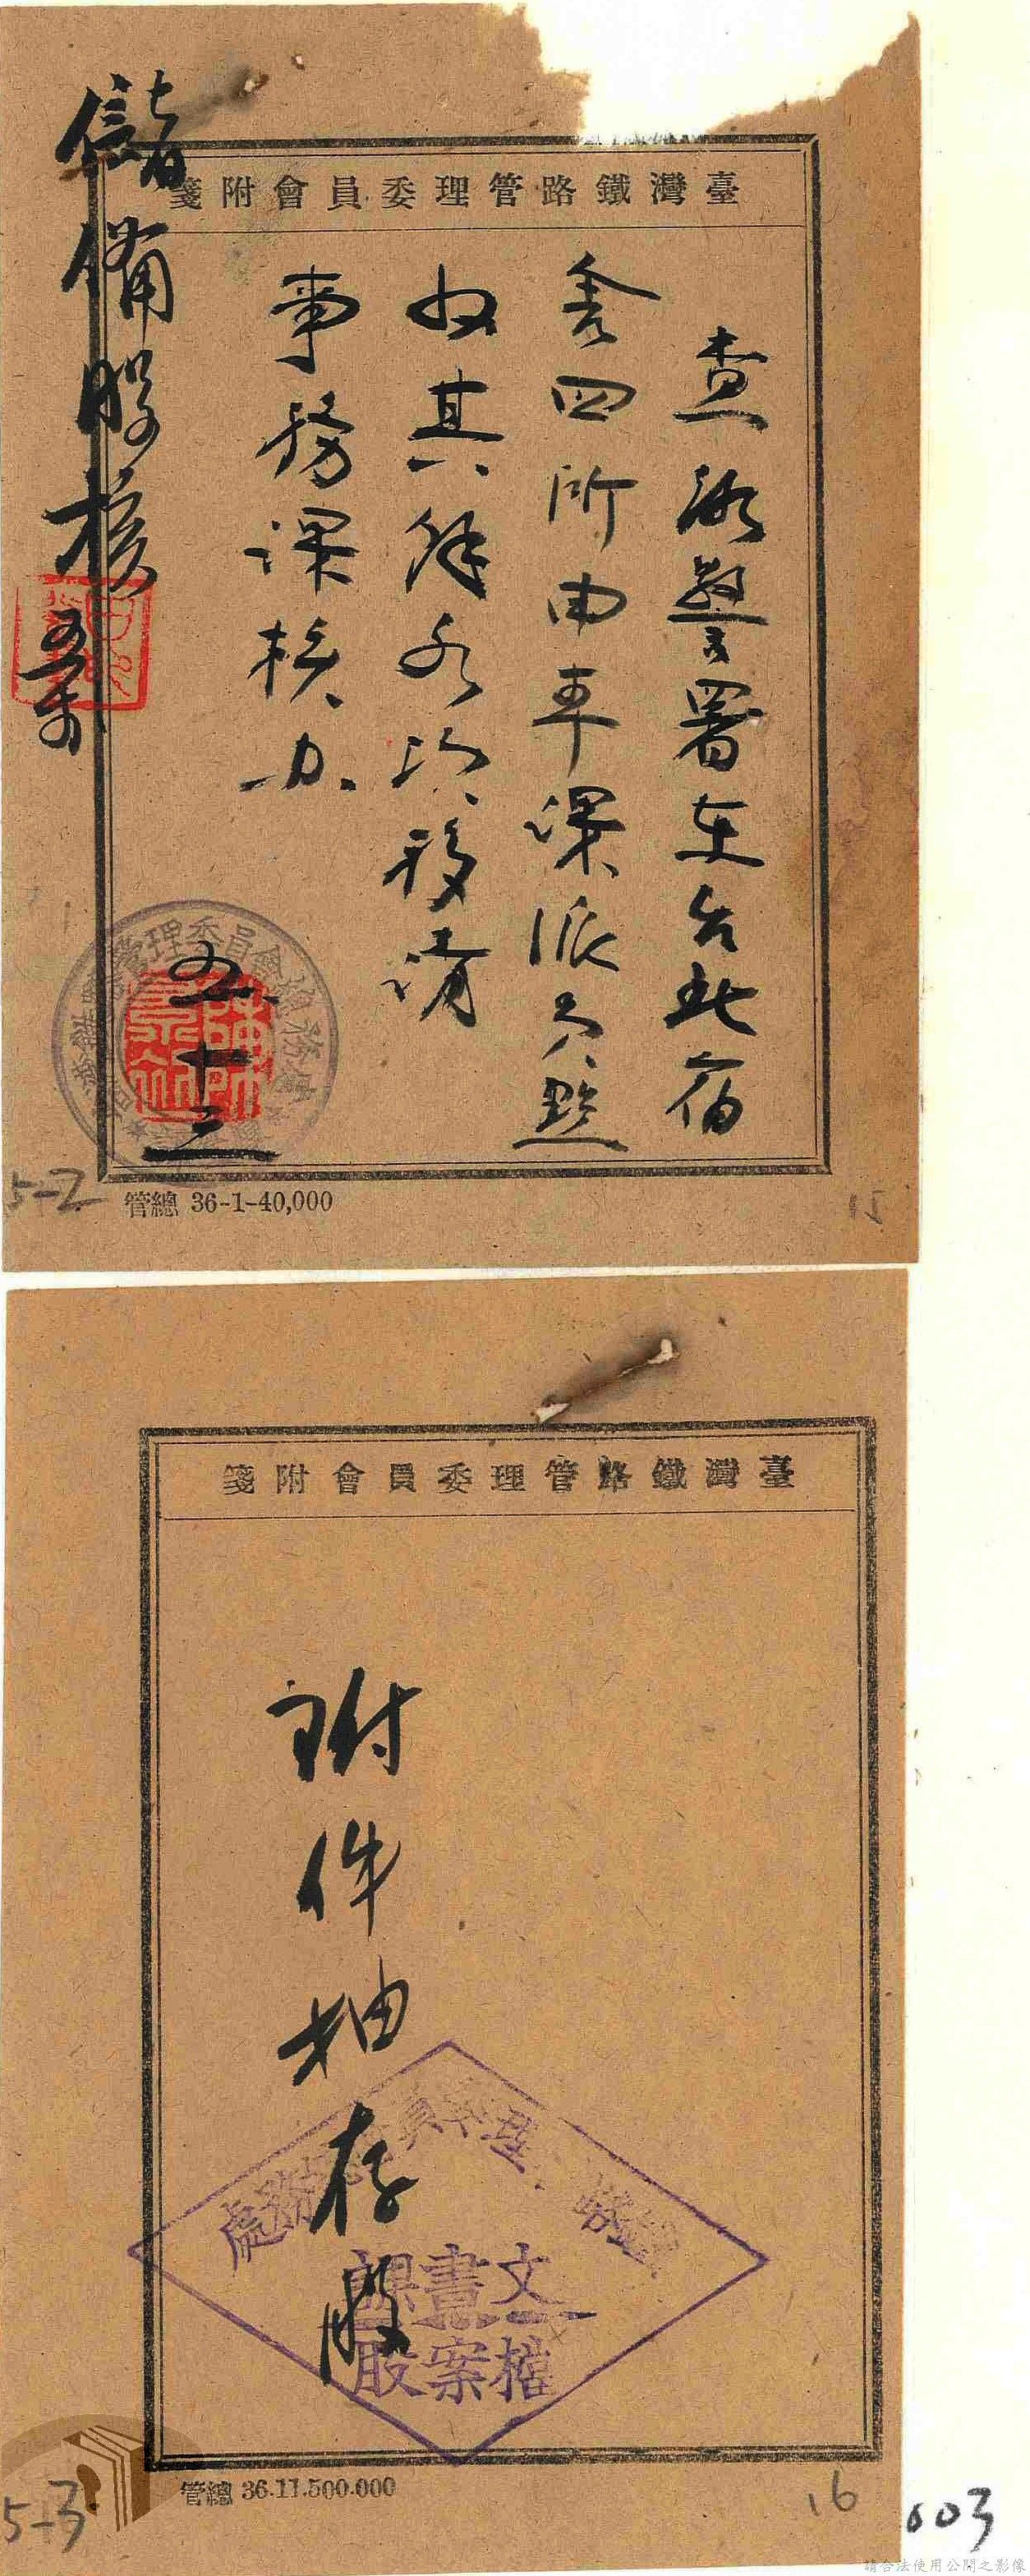 臺灣鐵路管理委員會附箋
查路警署在台北宿
舍四所由本課派員點
收其餘各項移請
事務課核办
五 十三
儲備股核
管總 36-1-40,000
5-2
15
臺灣鐵路管理委員會附箋
附件抽存股
文書課
檔案股
管總 36.11.500.000
5-3
16
003
請合法使用公開之影像